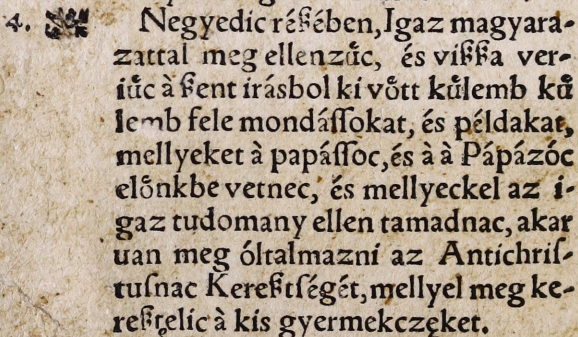 4. Negyedic réßében, Igaz magyara-
zattal meg ellenzűc, és vißßa ver-
iűc à ßent irásbol ki vőtt kűlemb kű
lemb fele mondáſſokat, és példakat,
mellyeket à papáſſoc, és à à Pápázóc
előnkbe vetnec, és mellyeckel az i-
gaz tudomany ellen tamadnac, akar
uan meg óltalmazni az Antichriſ-
tuſnac Kereßtſégét, mellyel meg ke-
reßtelic à kis gyermekczęket.